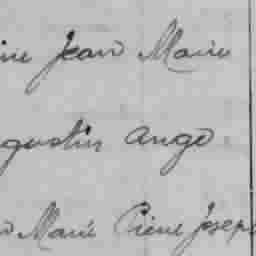 ine Jean Marie
gustin Ange
Marie Pierre Joseph